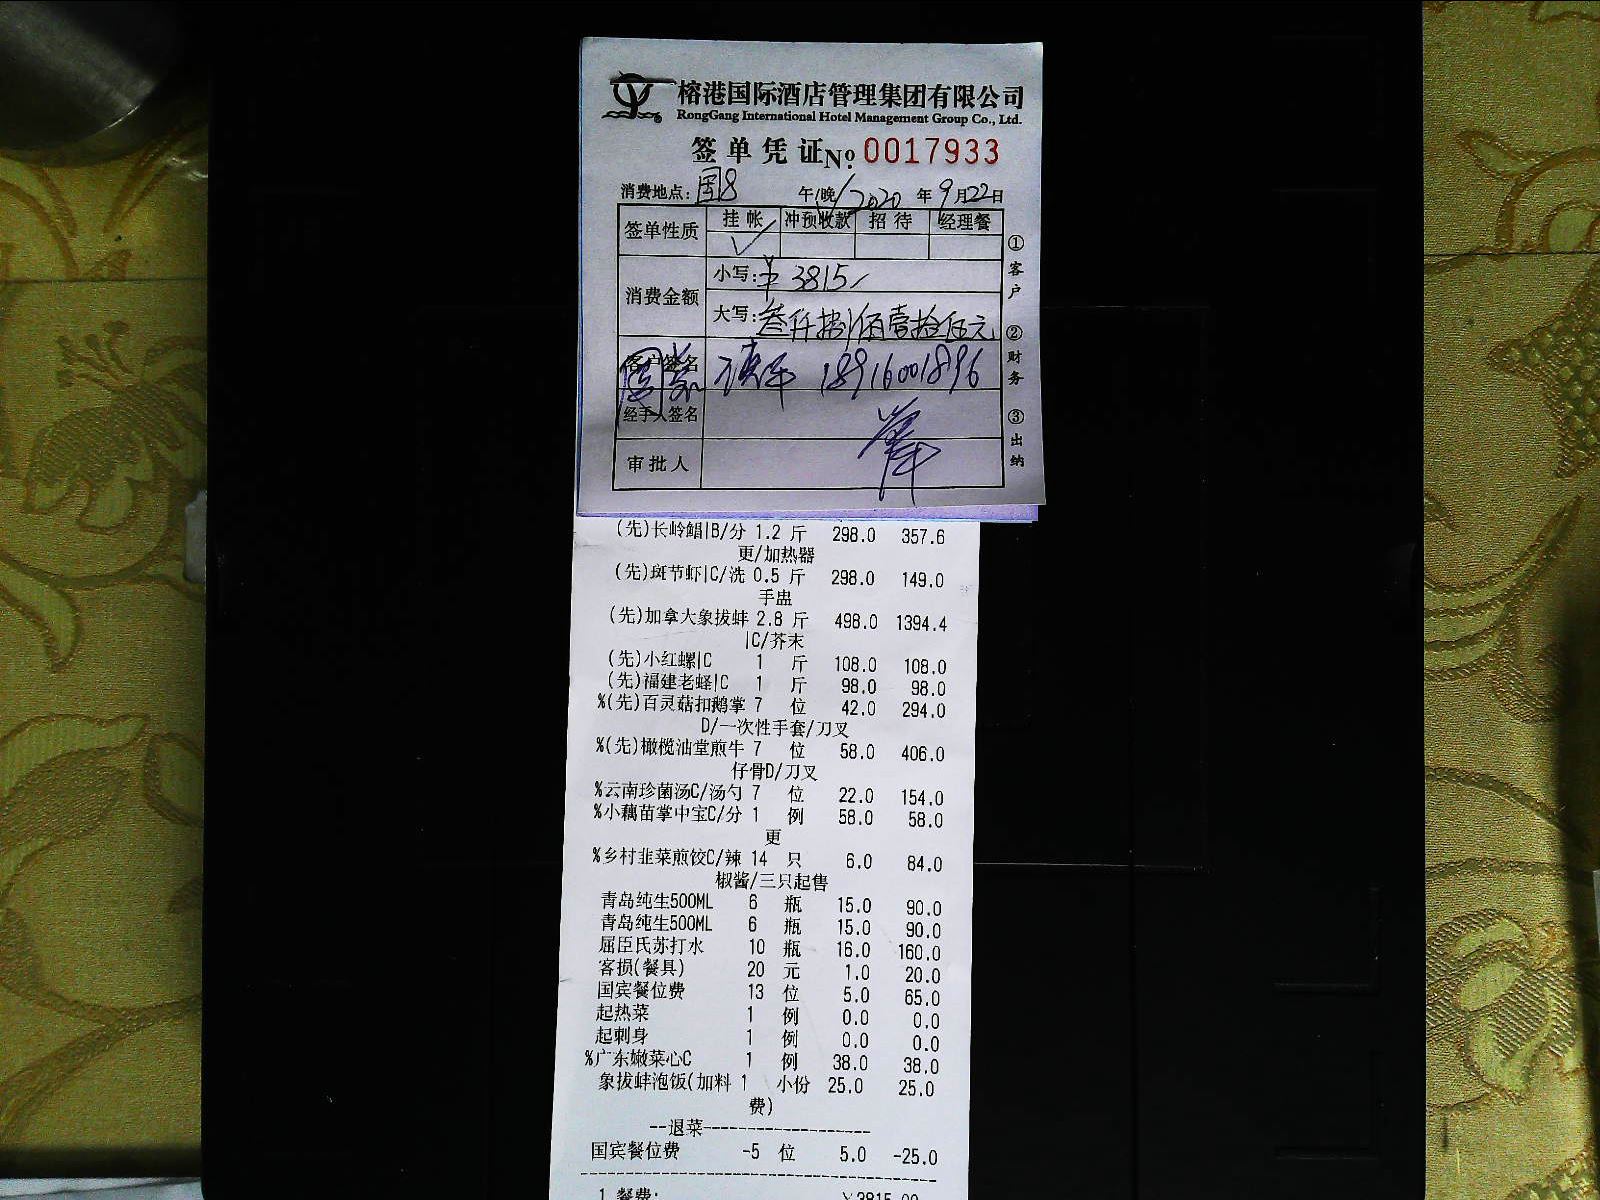 榕港国际酒店管理集团有限公司
RongGang International Hotel Management Group Co., Ltd.
签单凭证 No. 0017933
消费地点: 国8 午/晚 2020 年 9月22日
签单性质 挂帐 冲预收款 招待 经理餐
√
消费金额 小写: ¥ 3815/
大写: 叁仟捌佰壹拾伍元
客户签名 18916001896
经手人签名
审批人
①客户 ②财务 ③出纳
(先)长岭鲳|B/分 1.2 斤 298.0 357.6
更/加热器
(先)斑节虾|C/洗 0.5 斤 298.0 149.0
手盅
(先)加拿大象拔蚌 2.8 斤 498.0 1394.4
|C/芥末
(先)小红螺|C 1 斤 108.0 108.0
(先)福建老蛏|C 1 斤 98.0 98.0
%(先)百灵菇扣鹅掌 7 位 42.0 294.0
D/一次性手套/刀叉
%(先)橄榄油堂煎牛 7 位 58.0 406.0
仔骨D/刀叉
%云南珍菌汤C/汤勺 7 位 22.0 154.0
%小藕苗掌中宝C/分 1 例 58.0 58.0
更
%乡村韭菜煎饺C/辣 14 只 6.0 84.0
椒酱/三只起售
青岛纯生500ML 6 瓶 15.0 90.0
青岛纯生500ML 6 瓶 15.0 90.0
屈臣氏苏打水 10 瓶 16.0 160.0
客损(餐具) 20 元 1.0 20.0
国宾餐位费 13 位 5.0 65.0
起热菜 1 例 0.0 0.0
起刺身 1 例 0.0 0.0
%广东嫩菜心C 1 例 38.0 38.0
象拔蚌泡饭(加料 1 小份 25.0 25.0
费)
--退菜-------------------
国宾餐位费 -5 位 5.0 -25.0
1.餐费: ¥3815.00